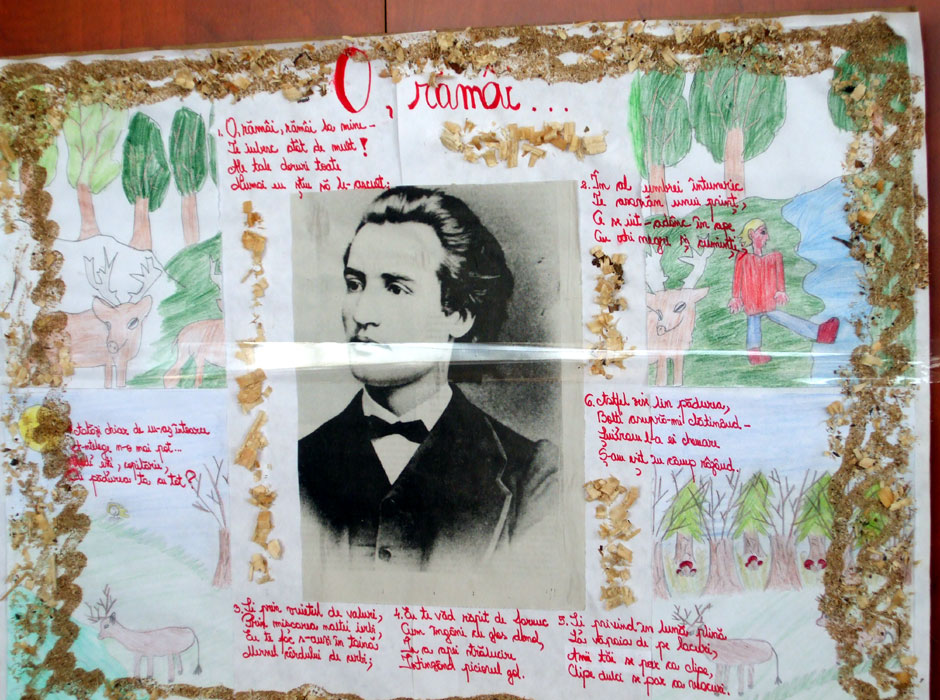 O, rămâi...
1. O, rămâi, rămâi la mine-
Te iubesc atât de mult!
Ale tale doruri toate
Numai eu știu să le-ascult;
2. În al umbrei întuneric
Te asamăn unui prinț,
Ce se uit-adânc în ape
Cu ochi negri și cuminți;
3. Și prin vuietul de valuri,
Prin mișcarea naltei ierbi,
Eu te fac s-auzi în taină
Mersul cârdului de cerbi;
4. Eu te văd răpit de farmec
Cum îngâni cu glas domol,
În a apei strălucire
Întinzând piciorul gol.
5. Și privind în luna plină
La văpaia de pe lacuri,
Anii tăi se par ca clipe,
Clipe dulci se par ca veacuri.
6. Astfel zise lin pădurea,
Bolți asupră-mi clătinând-
Șuieram l-a ei chemare
Ș-am ieșit în câmp râzând.
Astăzi chiar de m-aș întoarce
A-nțelege n-o mai pot...
Unde ești, copilărie,
Cu pădurea ta cu tot?